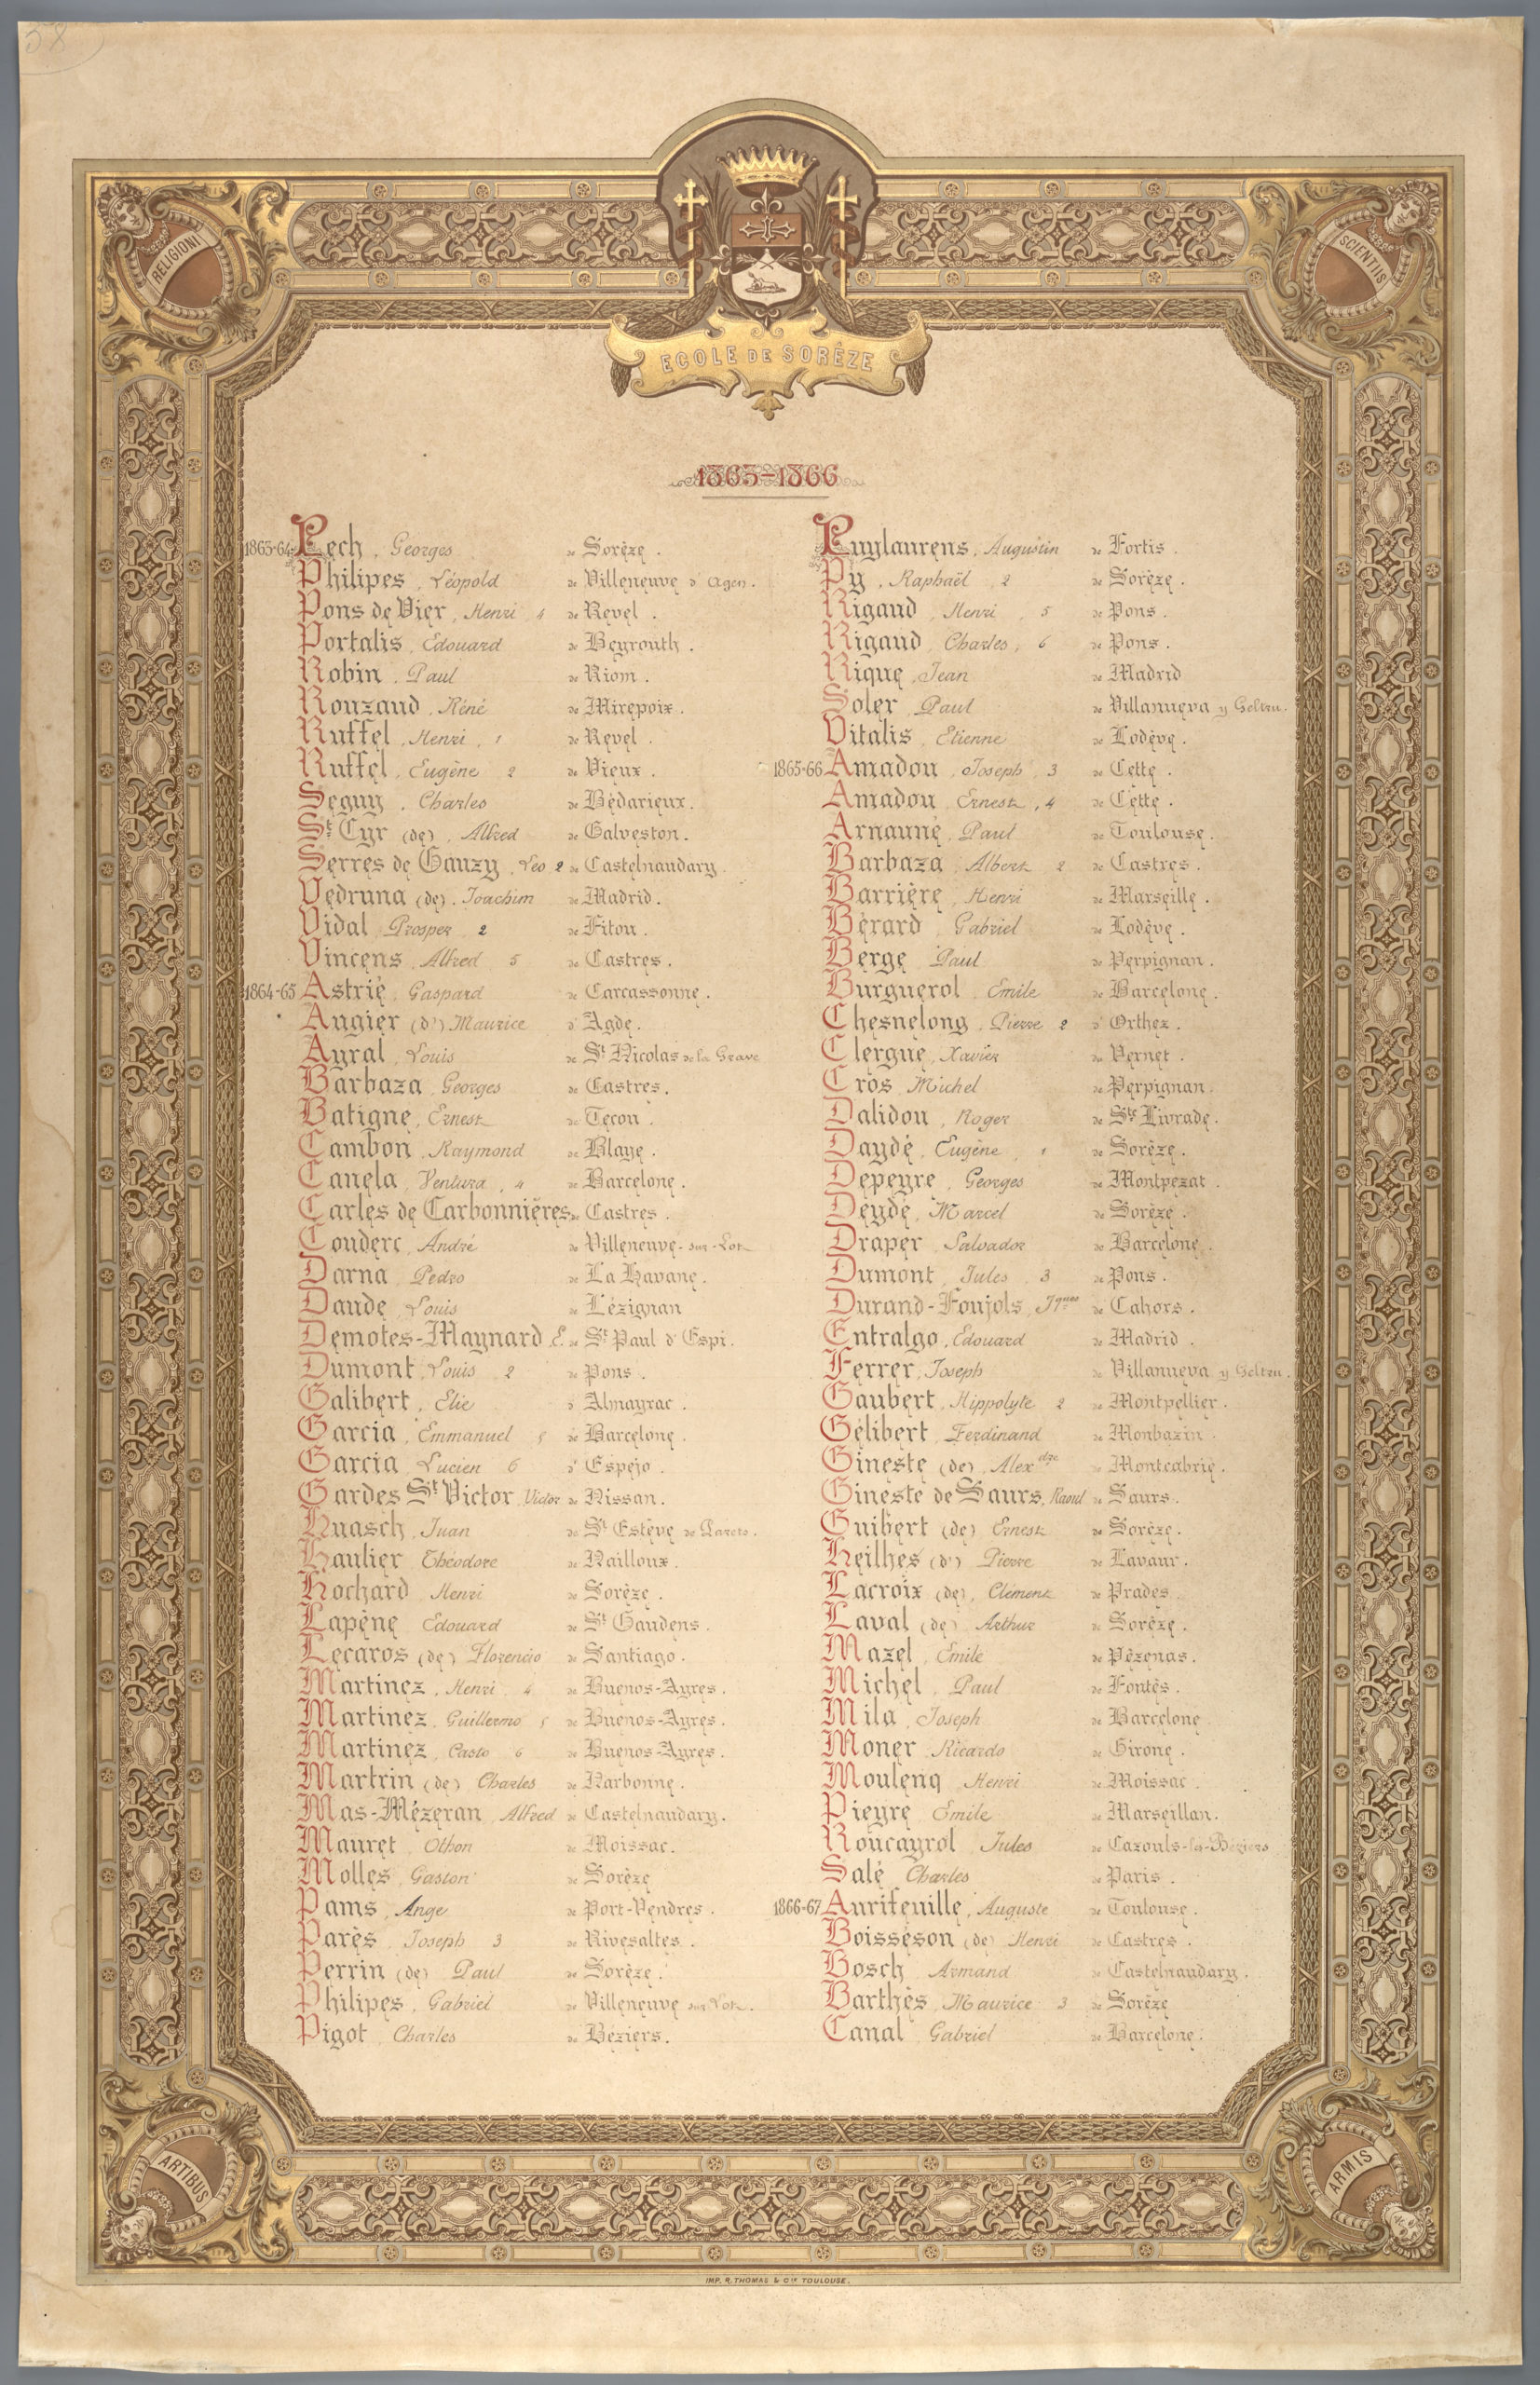 58
RELIGIONI
SCIENTIIS
ECOLE DE SORÈZE
1863-1866
1863-64 Pech, Georges de Sorèze.
Philipes, Léopold de Villeneuve d'Agen.
Pons de Vier, Henri 4 de Revel.
Portalis, Edouard de Beyrouth.
Robin, Paul de Riom.
Rouzaud, Réné de Mirepoix.
Ruffel, Henri, 1 de Revel.
Ruffel, Eugène 2 de Vieux.
Seguy, Charles de Bédarieux.
St Cyr (de), Alfred de Galveston.
Serres de Gauzy, Leo 2 de Castelnaudary.
Vedruna (de), Joachim de Madrid.
Vidal, Prosper 2 de Fitou.
Vincens, Alfred 5 de Castres.
1864-65 Astrié, Gaspard de Carcassonne.
Augier (d') Maurice d'Agde.
Ayral, Louis de St Nicolas de la Grave
Barbaza, Georges de Castres.
Batigne, Ernest de Tecou.
Cambon, Raymond de Blaye.
Canela, Ventura, 4 de Barcelone.
Carles de Carbonnières de Castres.
Couderc, André de Villeneuve-sur-Lot
Darna, Pedro de La Havane.
Daude, Louis de Lézignan
Demotes-Maynard E. de St Paul d'Espi.
Dumont, Louis 2 de Pons.
Galibert, Elie d'Almayrac.
Garcia, Emmanuel 5 de Barcelone.
Garcia Lucien 6 d'Espejo.
Gardes St Victor, Victor de Nissan.
Huasch, Juan de St Estève de Pareto.
Haulier Théodore de Nailloux.
Hochard Henri de Sorèze.
Lapène Edouard de St Gaudens.
Lecaros (de) Florencio de Santiago.
Martinez, Henri 4 de Buenos-Ayres.
Martinez, Guillermo 5 de Buenos-Ayres.
Martinez, Casto 6 de Buenos-Ayres.
Martrin (de) Charles de Narbonne.
Mas-Mézeran, Alfred de Castelnaudary.
Mauret, Othon de Moissac.
Molles, Gaston de Sorèze
Pams, Ange de Port-Vendres.
Parès, Joseph 3 de Rivesaltes.
Perrin (de) Paul de Sorèze.
Philipes, Gabriel de Villeneuve sur Lot.
Pigot, Charles de Béziers.
Puylaurens, Augustin de Fortis.
Py, Raphaël 2 de Sorèze.
Rigaud, Henri, 5 de Pons.
Rigaud, Charles, 6 de Pons.
Rique, Jean de Madrid
Soler, Paul de Villanueva y Geltru.
Vitalis, Etienne de Lodève.
1865-66 Amadou, Joseph, 3 de Cette.
Amadou, Ernest, 4 de Cette.
Arnauné, Paul de Toulouse.
Barbaza, Albert 2 de Castres.
Barrière, Henri de Marseille.
Bérard, Gabriel de Lodève.
Berge, Paul de Perpignan.
Burguerol, Emile de Barcelone.
Chesnelong, Pierre 2 d'Orthez.
Clergue, Xavier du Vernet.
Cros, Michel de Perpignan.
Dalidou, Roger de Ste Livrade.
Daydé, Eugène, 1 de Sorèze.
Depeyre, Georges de Montpezat.
Deydé, Marcel de Sorèze.
Draper, Salvador de Barcelone.
Dumont, Jules, 3 de Pons.
Durand-Foujols, Jques de Cahors.
Entralgo, Edouard de Madrid.
Ferrer, Joseph de Villanueva y Geltru.
Gaubert, Hippolyte 2 de Montpellier.
Gélibert, Ferdinand de Monbazin.
Gineste (de), Alexdre de Montcabrié.
Gineste de Saurs, Raoul de Saurs.
Guibert (de) Ernest de Sorèze.
Heilhes (d') Pierre de Lavaur.
Lacroix (de), Clément de Prades.
Laval (de) Arthur de Sorèze.
Mazel, Emile de Pézenas.
Michel, Paul de Fontès.
Mila, Joseph de Barcelone
Moner, Ricardo de Girone.
Moulenq, Henri de Moissac.
Pieyre, Emile de Marseillan.
Roucayrol, Jules de Cazouls-les-Béziers
Salé, Charles de Paris.
1866-67 Aurifeuille, Auguste de Toulouse.
Boisseson (de) Henri de Castres.
Bosch, Armand de Castelnaudary.
Barthès, Maurice 3 de Sorèze
Canal, Gabriel de Barcelone.
ARTIBUS
ARMIS
IMP. R. THOMAS & Cie TOULOUSE.